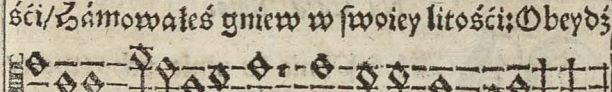 śći/ Hámowałeś gniew w ſwoiey litośći: Obeydź